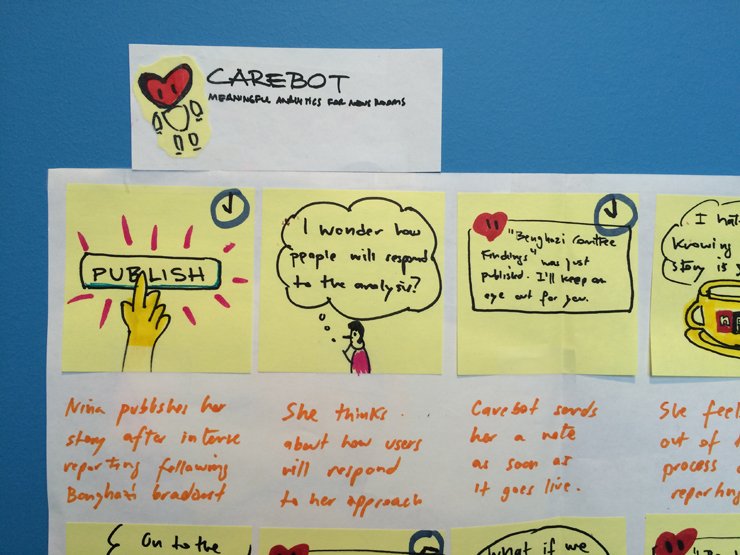 CAREBOT
MEANINGFUL ANALYTICS FOR NEWS ROOMS
PUBLISH
"I wonder how
people will respond
to the analysis?
"Benghazi Comttee
Findings" was just
published. I'll keep an
eye out for you.
I hat
knowing
story is y
n p
Nina publishes her
story after intense
reporting following
Benghazi
She thinks
about how users
will respond
to her approach
Carebot sends
her a note
as soon as
it goes live.
She feel
out of
process
reporting
On to the
What if we